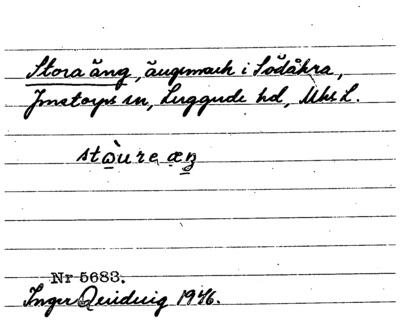 Stora äng, ängsmark i Södåkra,
Jmstorps sn, Luggude hd, Mhs L.
Nr 5683.
Inger Quiding 1946.